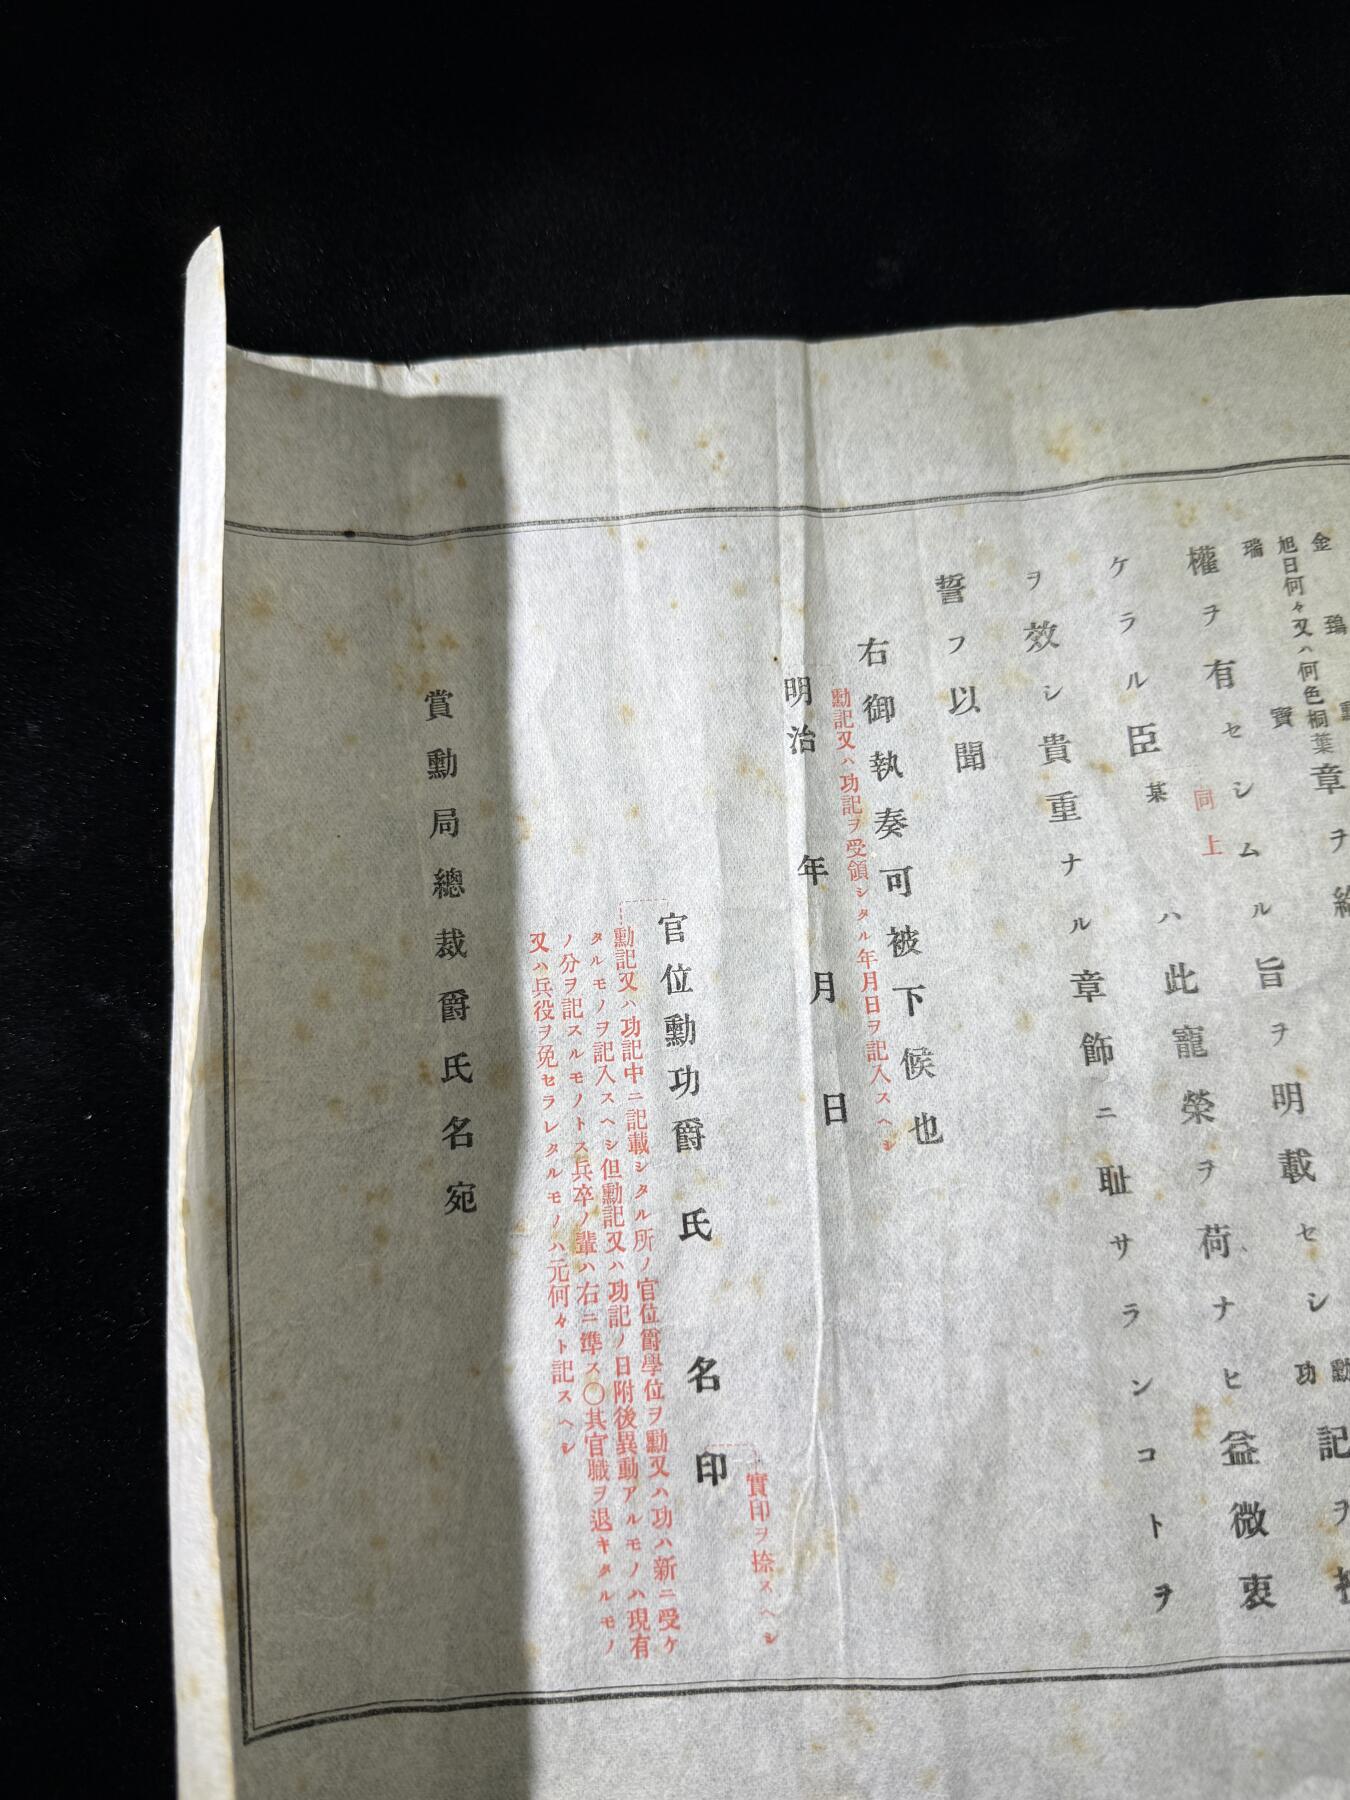 金鵄勳
旭日何々又ハ何色桐葉章ヲ
瑞寶
權ヲ有セシムル旨ヲ明載セシ
勳
功
記ヲ
ケラル臣某ハ此寵榮ヲ荷ナヒ益微衷
同上
ヲ效シ貴重ナル章飾ニ耻サランコトヲ
誓フ以聞
右御執奏可被下候也
勳記又ハ功記ヲ受領シタル年月日ヲ記入スヘシ
明治年月日
官位勳功爵氏名印
實印ヲ捺スヘシ
勳記又ハ功記中ニ記載シタル所ノ官位爵學位ヲ勳又ハ功ハ新ニ受ケ
タルモノヲ記入スヘシ但勳記又ハ功記ノ日附後異動アルモノハ現有
ノ分ヲ記スルモノトス兵卒ノ輩ハ右ニ準ス〇其官職ヲ退キタルモノ
又ハ兵役ヲ免セラレタルモノハ元何々ト記スヘシ
賞勳局總裁爵氏名宛